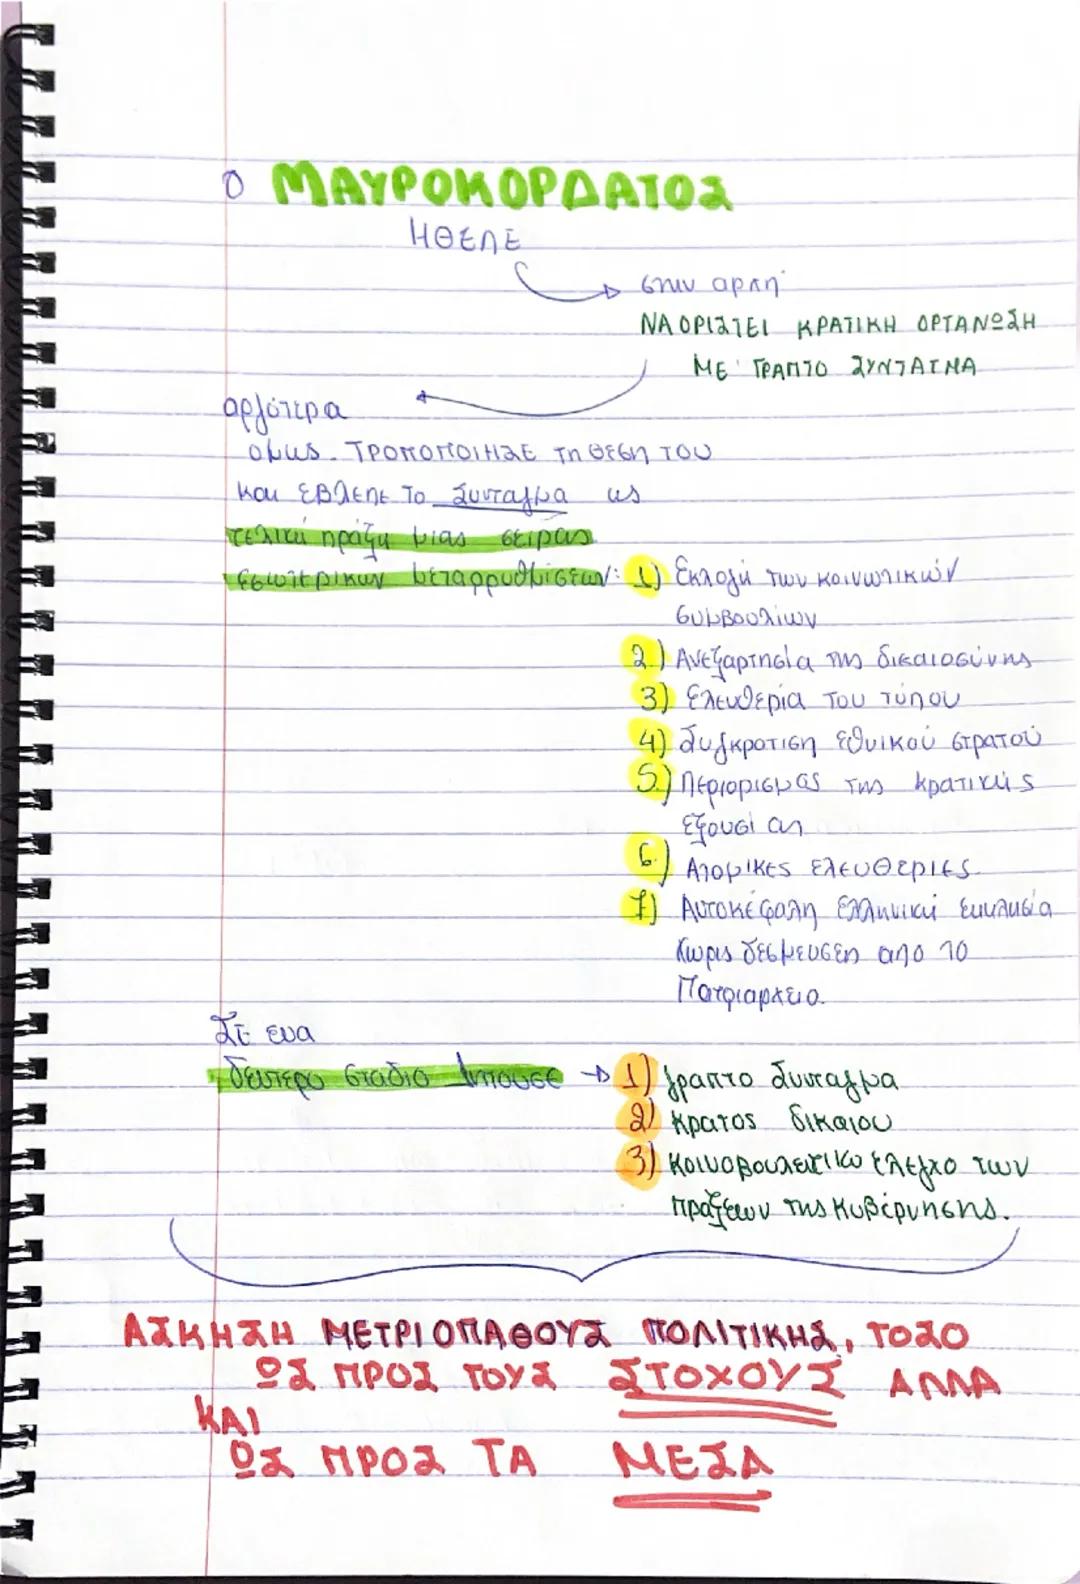 Ο ΜΑΥΡΟΚΟΡΔΑΤΟΣ
ΗΘΕΛΕ
στην αρχη
ΝΑ ΟΡΙΣΤΕΙ ΚΡΑΤΙΚΗ ΟΡΓΑΝΩΣΗ
ΜΕ ΓΡΑΠΤΟ ΣΥΝΤΑΓΜΑ
αργότερα
ομως ΤΡΟΠΟΠΟΙΗΣΕ τη θεση του
και ΕΒΛΕΠΕ το Συνταγμα ως
τελική πράξη μιας σειράς
εσωτερικων μεταρρυθμίσεων: 1) Εκλογή των κοινωτικών
συμβουλίων
2) Ανεξαρτησία της δικαιοσύνης
3) Ελευθερία του τύπου
4) Συγκροτιση εθνικού στρατού
5) Περιορισμας της κρατικής
εξουσί ας
6) Ατομικες ελευθεριες.
7) Αυτοκέφαλη Ελληνική εκκλησία
χωρις δεσμευσεις απο το
Πατριαρχειο.
Σε ενα
δευτερο σταδιο → 1) γραπτο Συνταγμα
2) κρατος δικαιου
3) κοινοβουλευτικο έλεγχο των
πράξεων της κυβέρνησης.
ΑΣΚΗΣΗ ΜΕΤΡΙΟΠΑΘΟΥΣ ΠΟΛΙΤΙΚΗΣ, ΤΟΣΟ
ΩΣ ΠΡΟΣ ΤΟΥΣ ΣΤΟΧΟΥΣ ΑΛΛΑ
ΚΑΙ
ΩΣ ΠΡΟΣ ΤΑ ΜΕΣΑ